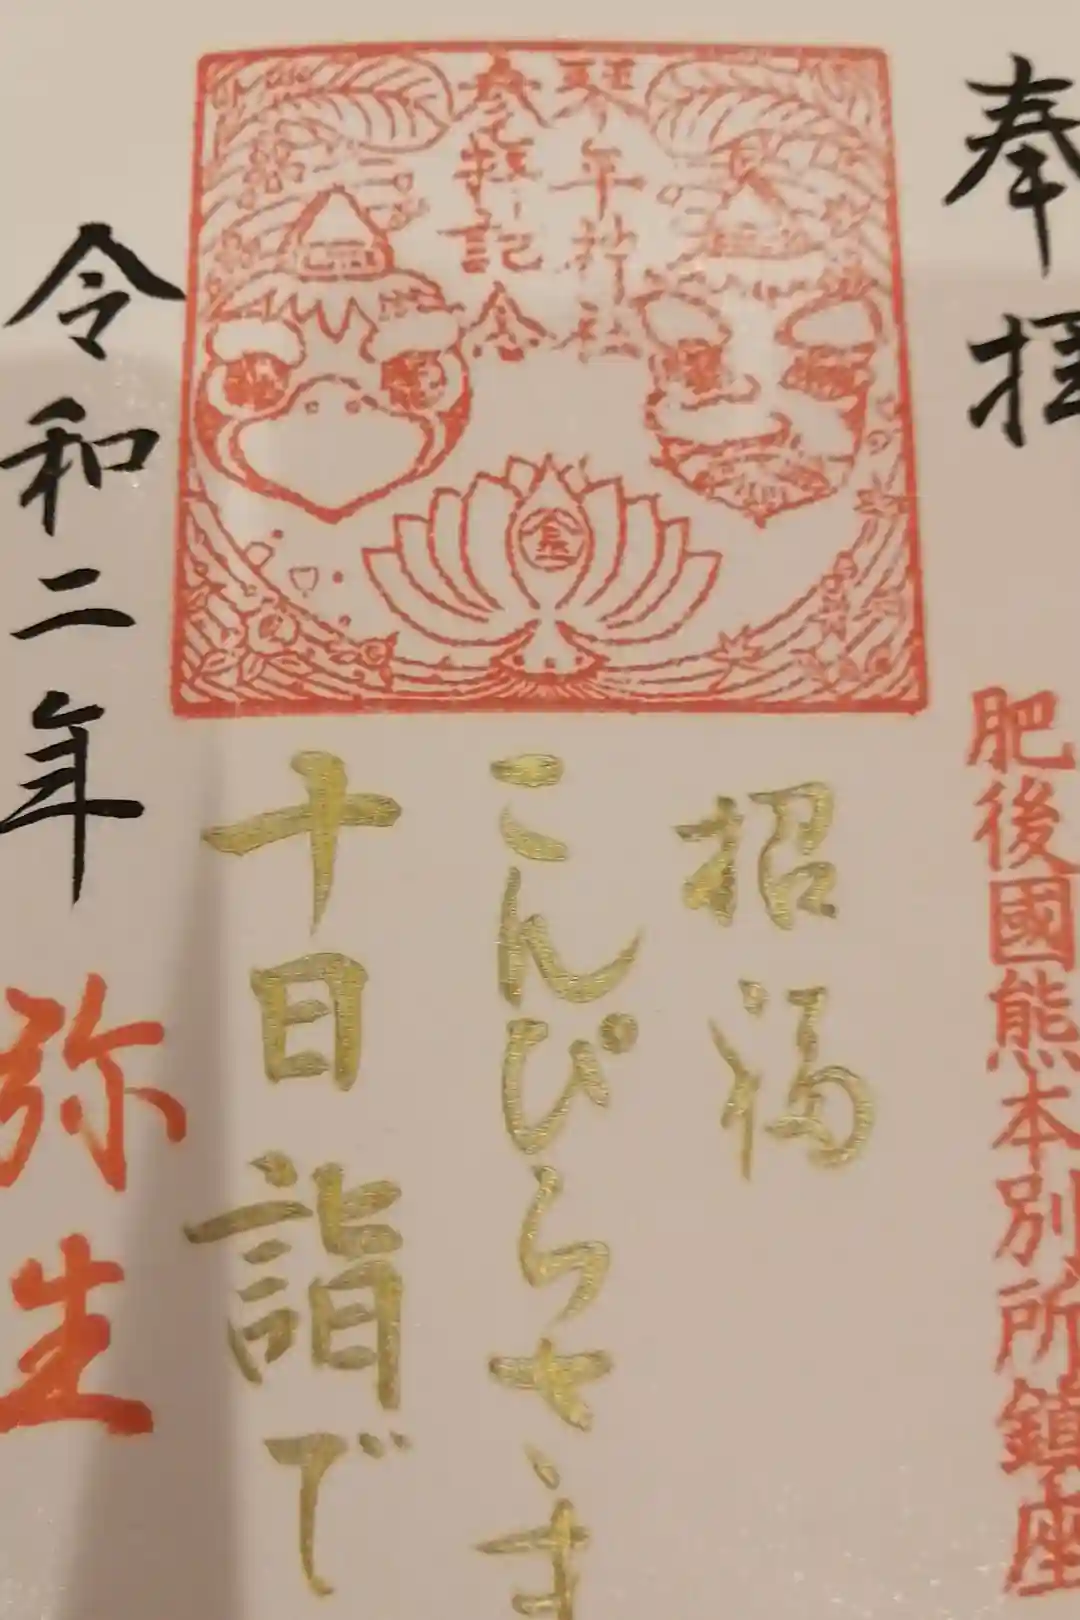 奉拝
肥後國熊本別所鎮座
琴平神社
参拝記念
招福
こんぴらさま
十日詣で
令和二年
弥生